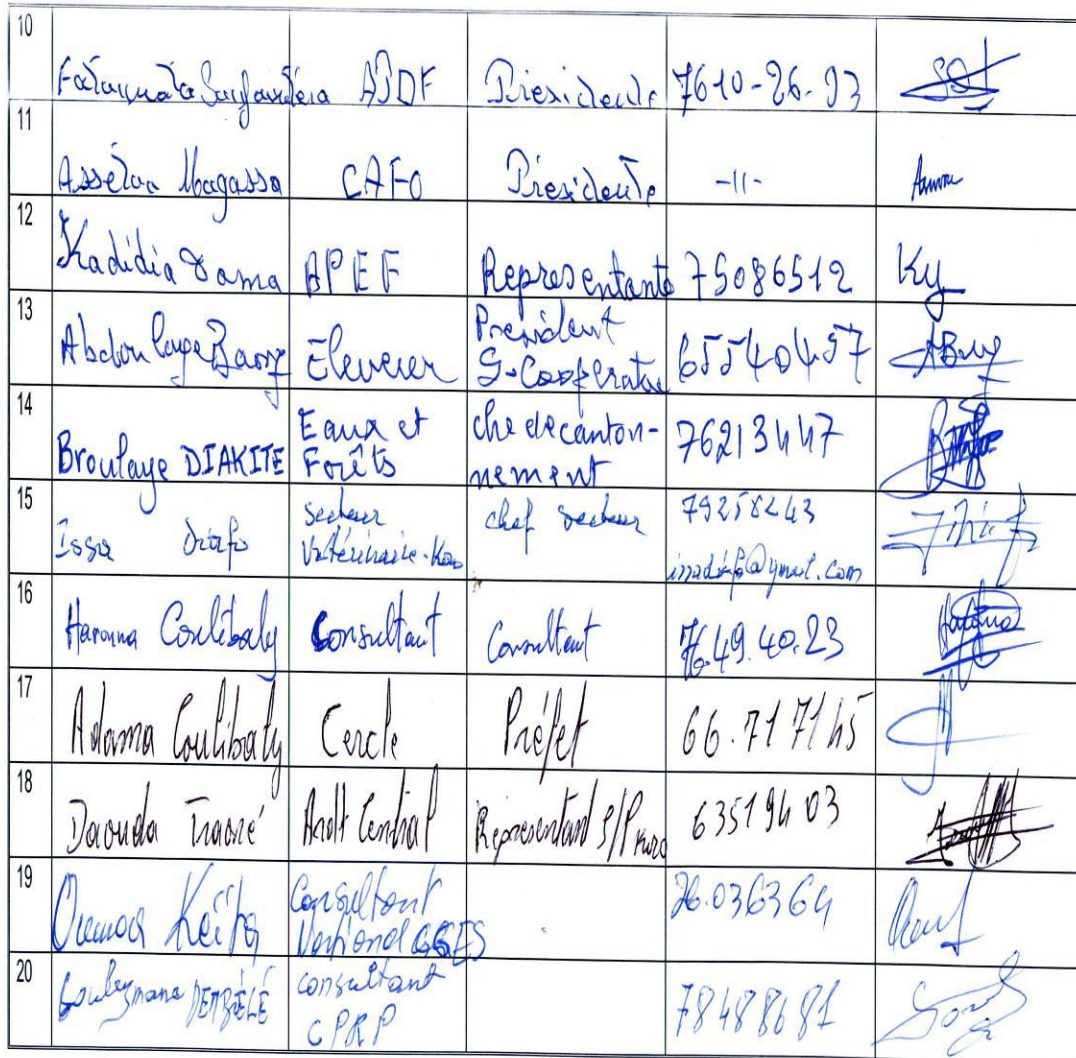 10
APDF Présidente 7610-26-93
11
Assétou Magassa CAFO Présidente -11-
12
Kadidia Dama APEF Representante 75086512 Ky
13
Abdoulaye Barry Eleveur President S-Cooperative 65540457 ABarry
14
Broulaye DIAKITE Eaux et Forêts che de canton-nement 76213447
15
Issa secteur Vétérinaire-Kao chef secteur 79258243
16
Harouna Coulibaly Consultant Consultant 76.49.40.23
17
Adama Coulibaly Cercle Préfet 66.717145
18
Daouda Traoré Arrdt Central Représentant S/P 63519403
19
Oumar Keïta Consultant National CGES 76.036364
20
Souleymane DEMBÉLÉ consultant CPRP 78488681